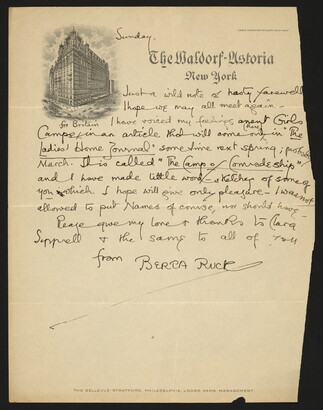 Sunday.
The Waldorf-Astoria
New York
Just a wild note of hasty farewell
I hope we may all meet again -
for Britain
I have voiced my feelings anent Girls
Camps in an article that will come out in "The
Ladies' Home Journal" some time next spring; probably
March. It is called "The Camp of Comradeship"
and I have made little word sketches of some of
you which I hope will give only pleasure - I was not
allowed to put Names of course, nor should have -
Please give my love & thanks to Clara
& the same to all of you
from BERTA RUCK
THE BELLEVUE-STRATFORD, PHILADELPHIA, UNDER SAME MANAGEMENT.